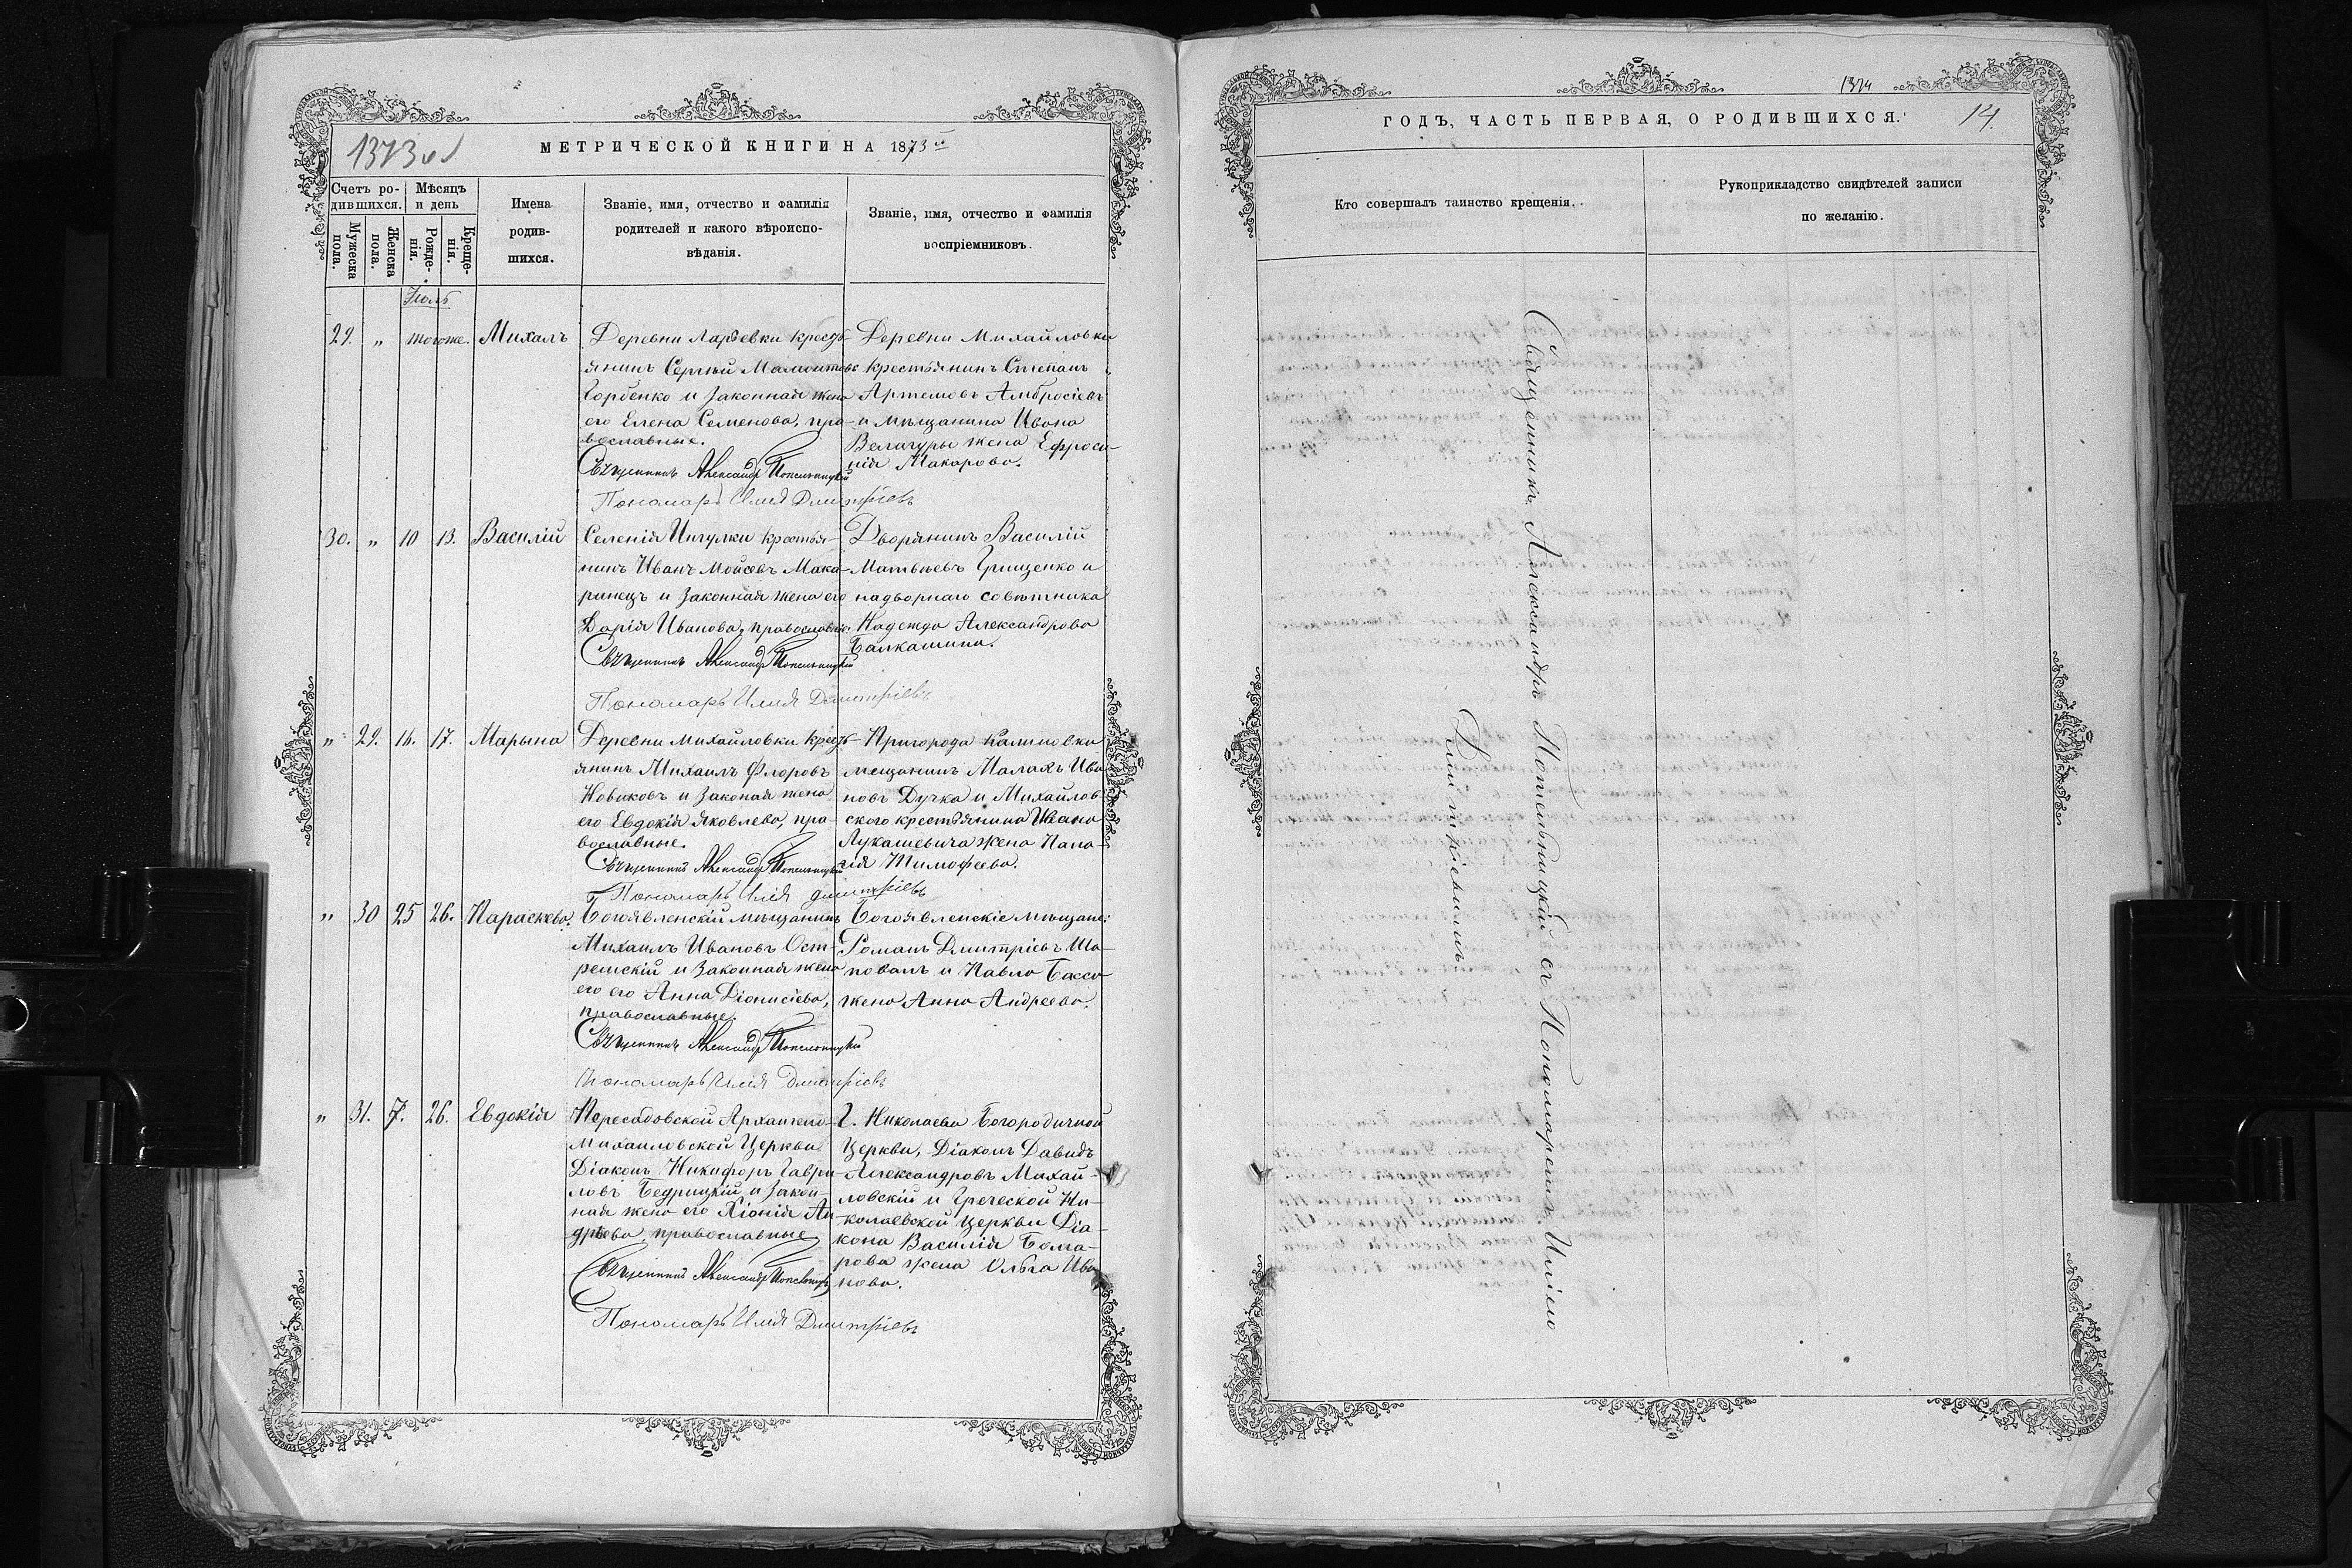 1373 об
МЕТРИЧЕСКОЙ КНИГИ НА 1873й
Счетъ родившихся.
Мѣсяцъ и день
Мужеска пола.
Женска пола.
Рожденія.
Крещенія.
Имена родившихся.
Званіе, имя, отчество и фамилія родителей и какого вѣроисповѣданія.
Званіе, имя, отчество и фамилія воспріемниковъ.
Іюль
29. " тогоже. Михаилъ
Деревни Ларьевки кресть-
янинъ Сергѣй
Горбенко и законная жена
его Елена Семенова, пра-
вославные.
Священникъ Александръ Котельницкій
Пономарь Илія Димитріевъ
Деревни Михайловки
крестьянинъ Степанъ
Артемовъ Амбросіевъ
и мѣщанина Ивана
Величуры жена Ефроси-
нія Макарова.
30. " 10 13. Василій
Селенія Ингулки крестья-
нинъ Иванъ Моѵсеевъ Мака-
ринецъ и законная жена его
Дарія Иванова, православные.
Священникъ Александръ Котельницкій
Пономарь Илія Димитріевъ
Дворянинъ Василій
Матвѣевъ Грищенко и
надворнаго совѣтника
Надежда Александрова
Балкашина.
" 29. 16. 17. Марына
Деревни Михайловки кресть-
янинъ Михаилъ Флоровъ
Новиковъ и законая жена
его Евдокія Яковлева, пра-
вославные.
Священникъ Александръ Котельницкій
Пономарь Илія Димитріевъ
Пригорода Калиновки
мещанинъ Малахъ Ива-
новъ Дучка и Михайлов-
ского крестьянина Ивана
Лукашевича жена Пала-
гія Тимофеева.
" 30 25 26. Параскева.
Богоявленскій мѣщанинъ
Михаилъ Ивановъ Ост-
ремскій и законная жена
его его Анна Діонисіева,
православные.
Священникъ Александръ Котельницкій
Пономарь Илія Димитріевъ
Богоявленскіе мѣщане:
Романъ Дмитріевъ Ша-
повалъ и Павла Бассо-
жена Анна Андреева.
" 31. 7. 26. Евдокія
Пересадовской Архангело-
Михаиловской Церкви
Діаконъ Никифоръ Гаври-
ловъ Бедрицкій и закон-
ная жена его Хіонія Ан-
дрѣева православные
Священникъ Александръ Котельницкій
Пономарь Илія Димитріевъ
Г. Николаева Богородичной
Церкви, Діаконъ Давидъ
Александровъ Михай-
ловскій и Греческой Ни-
колаевской церкви Діа-
кона Василія Болга-
рова жена Ольга Ива-
нова.
1374
14.
ГОДЪ, ЧАСТЬ ПЕРВАЯ, О РОДИВШИХСЯ.
Кто совершалъ таинство крещенія.
Рукоприкладство свидѣтелей записи
по желанію.
Священникъ Александръ Котельницкій съ Пономаремъ Иліею
Димитріевымъ